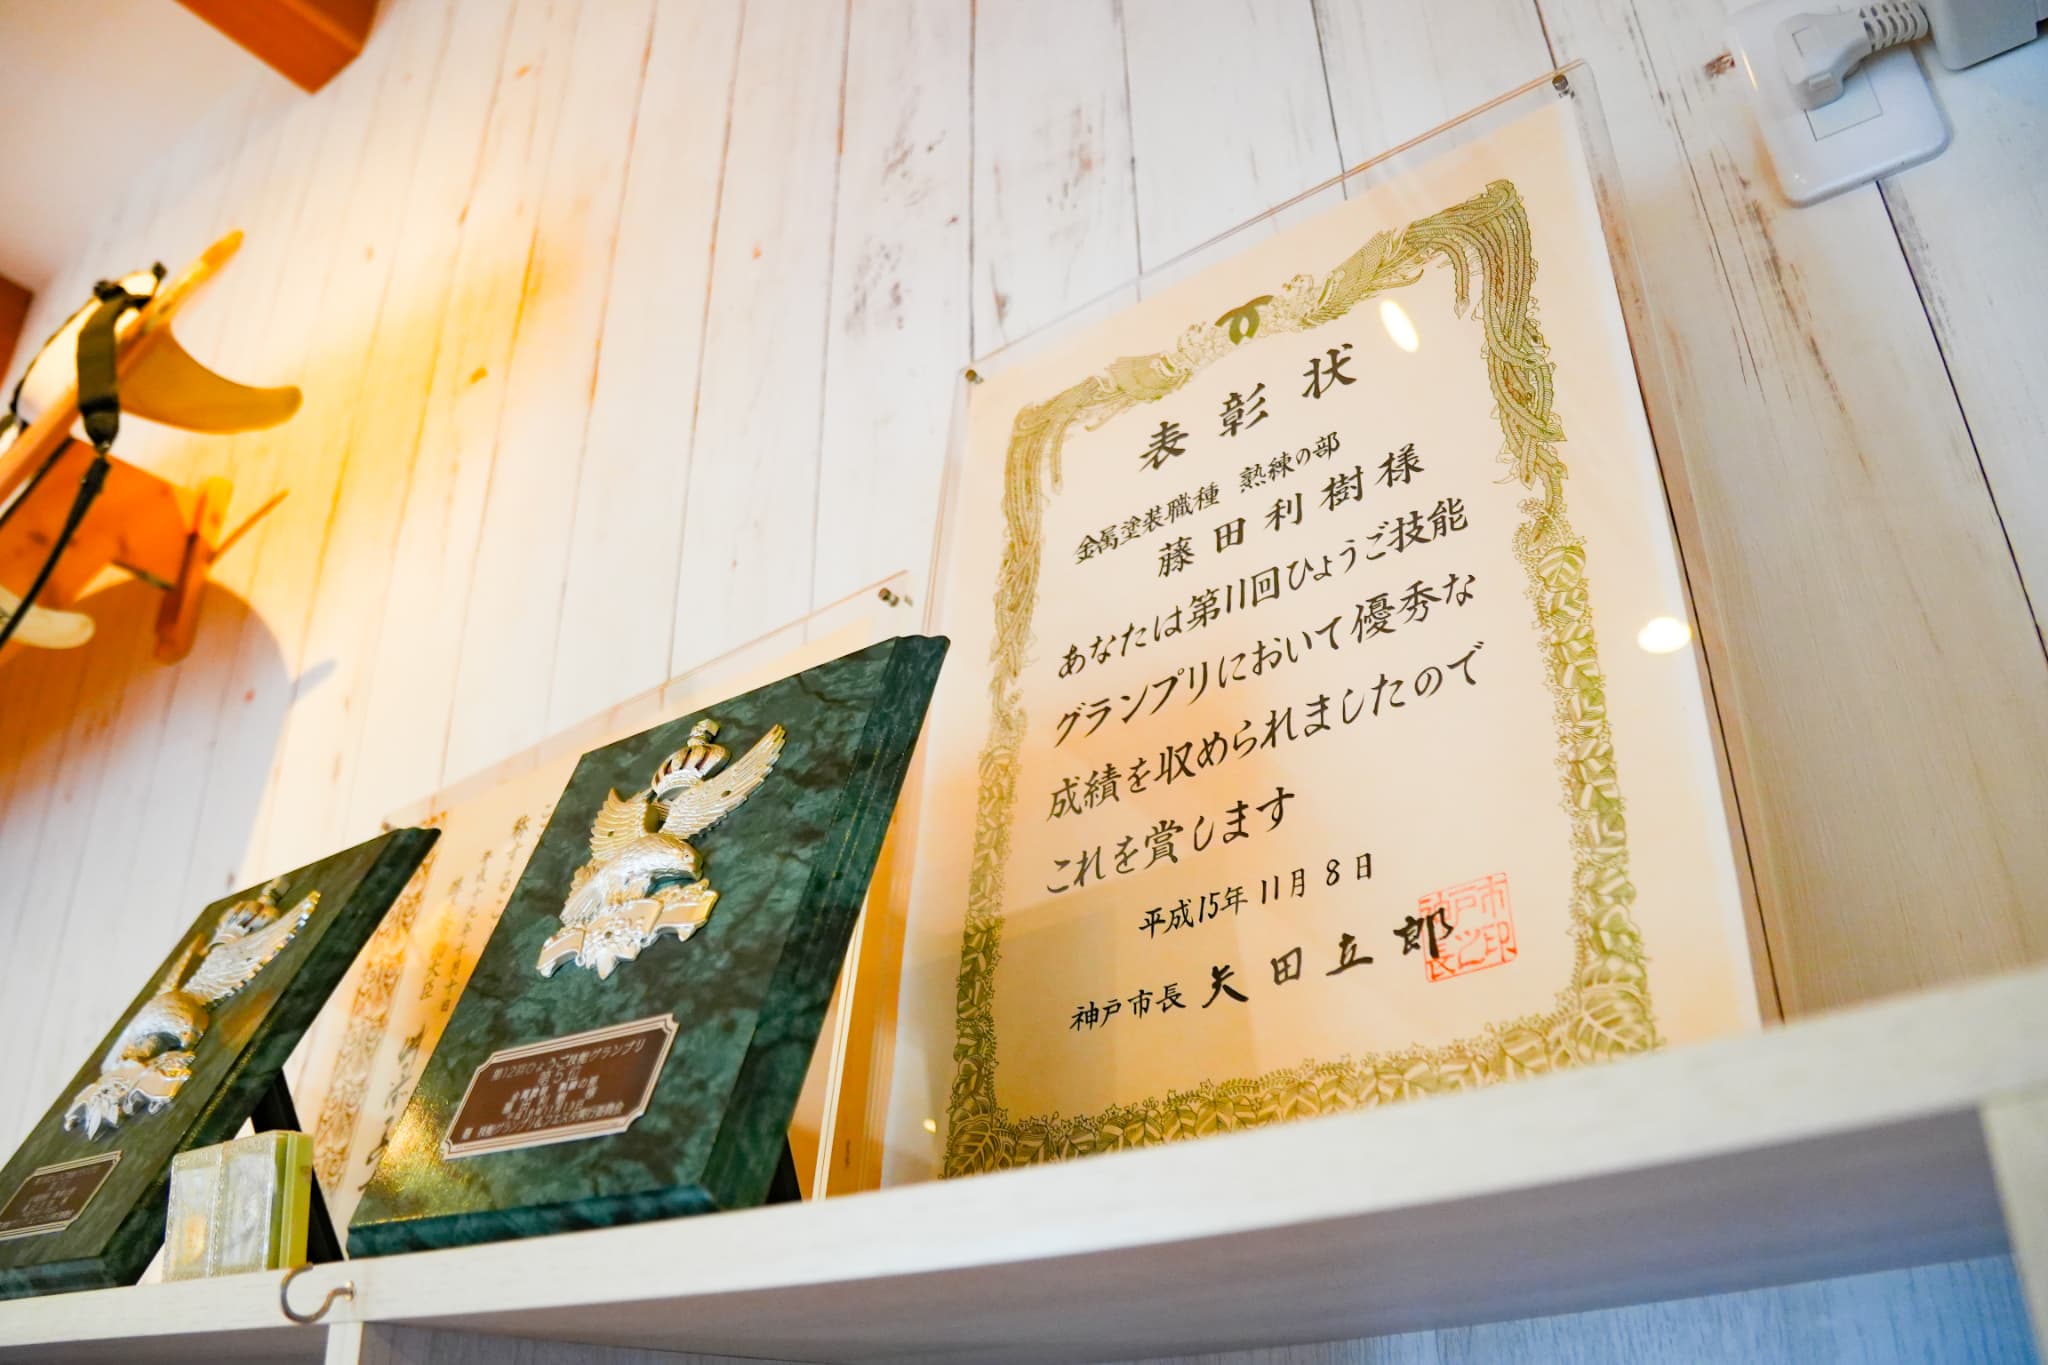 表彰状
金属塗装職種 熟練の部
藤田利樹様
あなたは第11回ひょうご技能
グランプリにおいて優秀な
成績を収められましたので
これを賞します
平成15年11月8日
神戸市長 矢田立郎
神戸市長之印
第12回ひょうご技能グランプリ
第5位
平成十九年十月十日
大臣